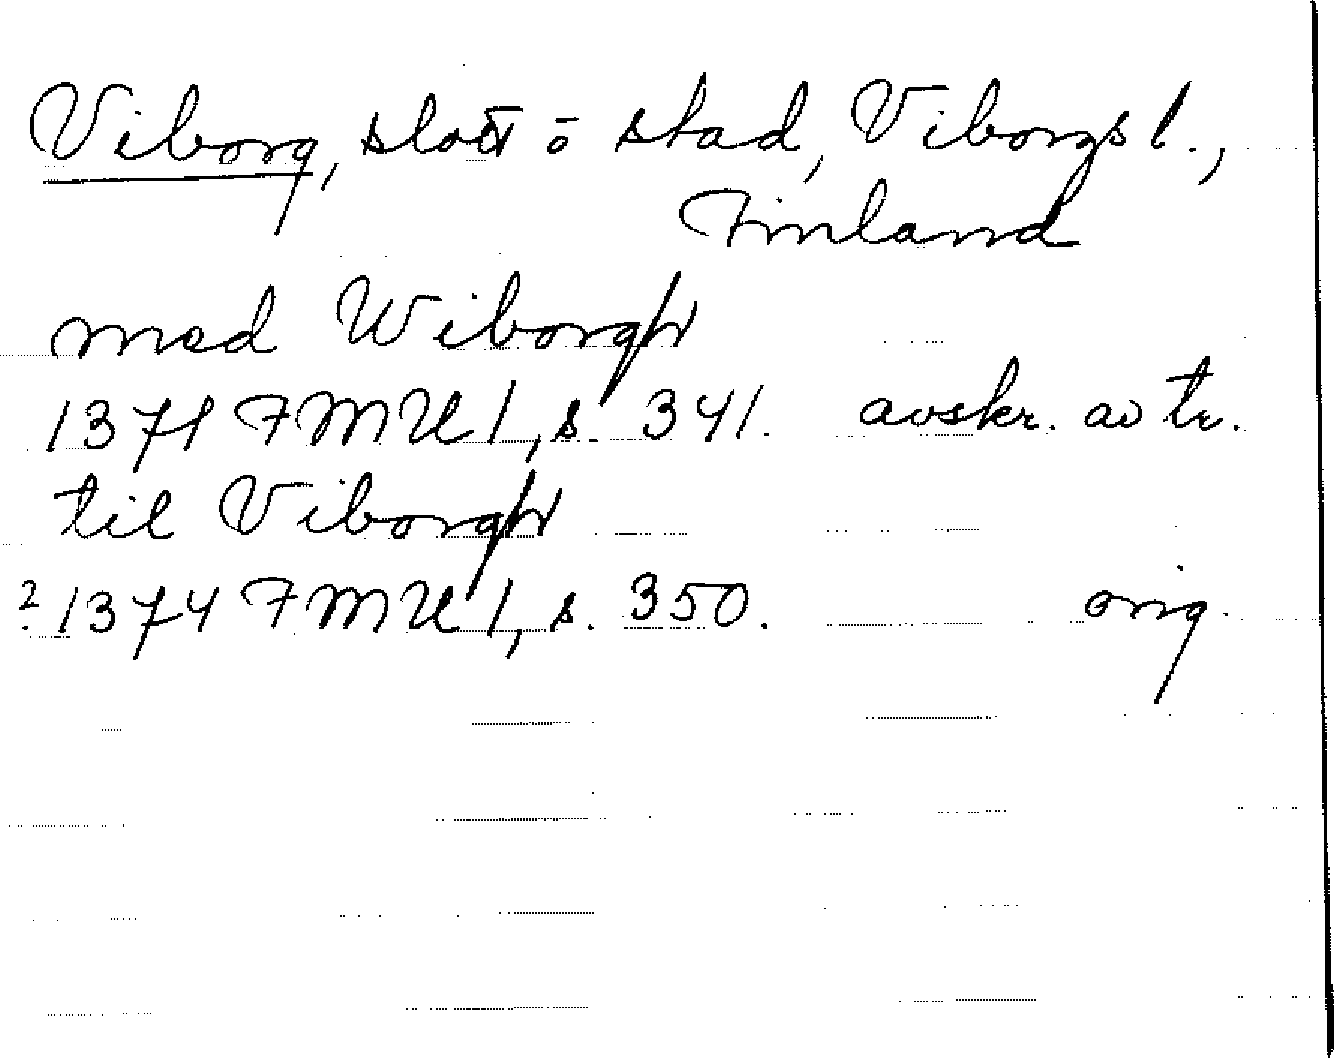 Viborg, slott o stad, Viborgs l.,
Finland
med Wiborgh
1371 FMU 1, s. 341. avskr. av tr.
til Viborgh
? 1374 FMU 1, s. 350. orig.